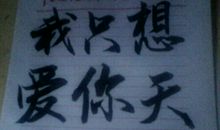 我只想
爱你天